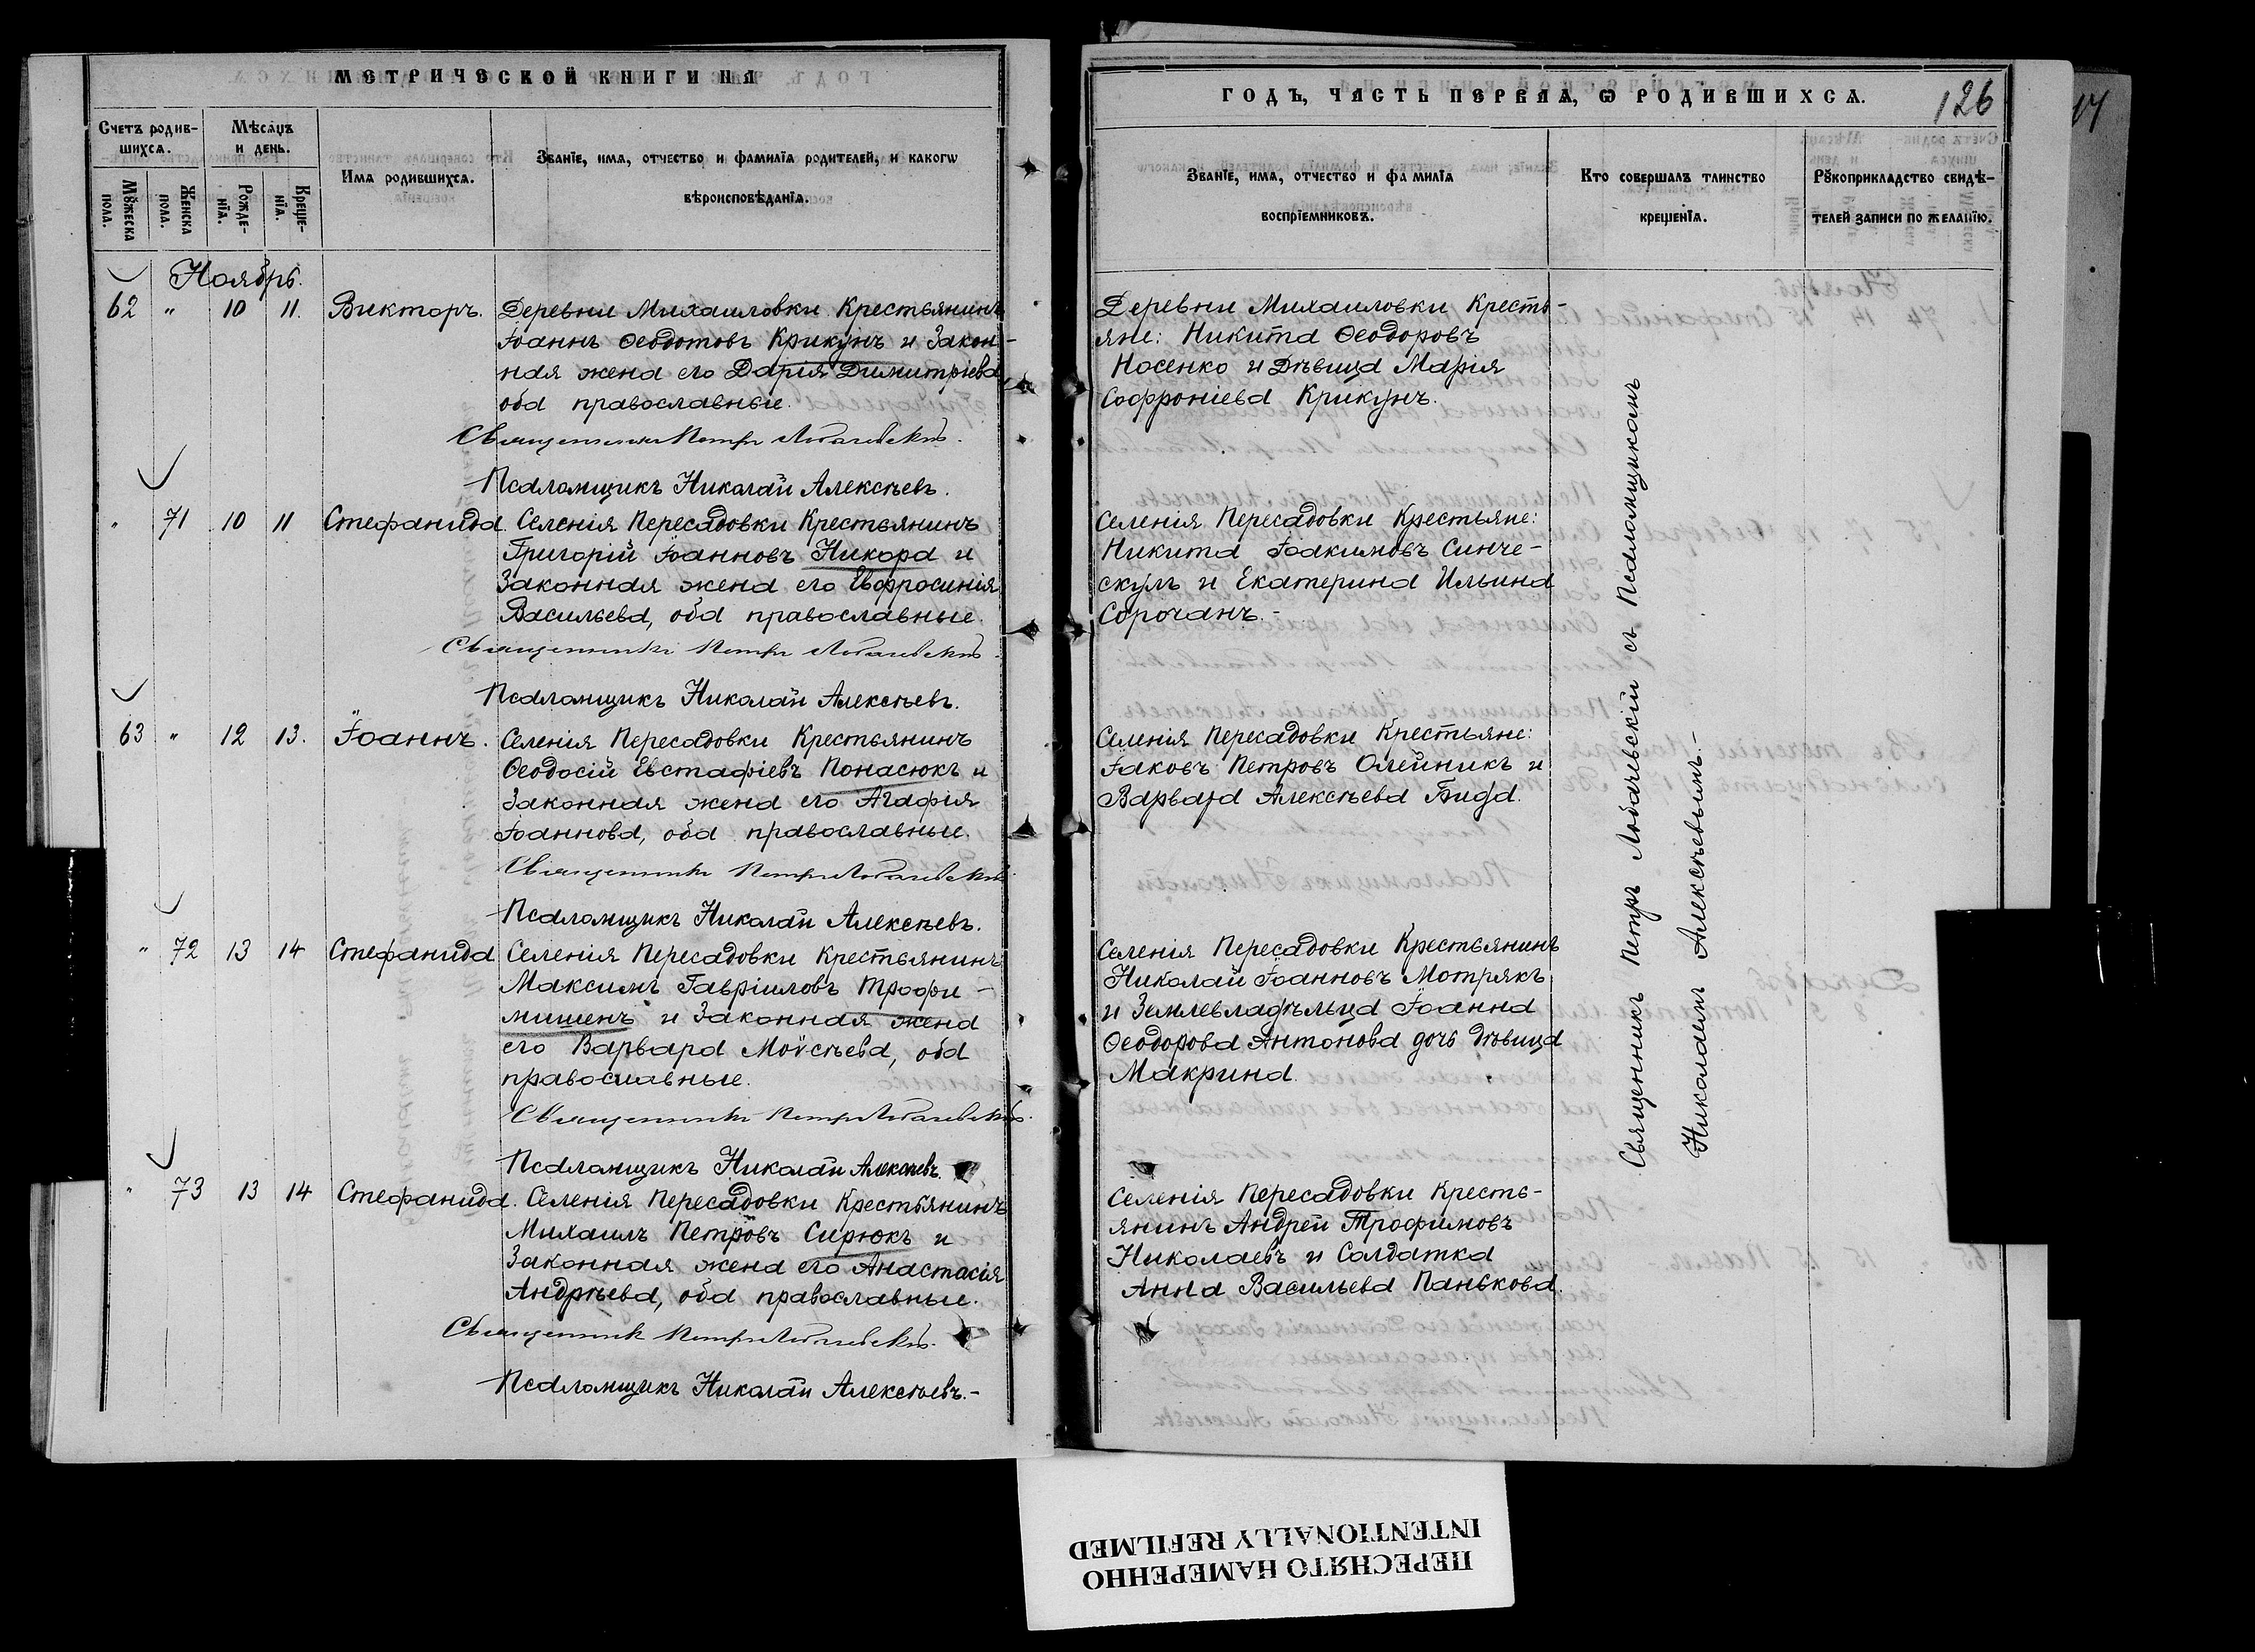 МЕТРИЧЕСКОЙ КНИГИ НА
Счетъ родив-
шихсѧ.
Мѣсѧцъ
и день.
Имѧ родившихсѧ.
Званїе, имѧ, отчество и фамилїѧ родителей, и какогѡ
вѣроисповѣданїѧ.
Мꙋжеска
пола.
Женска
пола.
Рожде-
нїѧ.
Креще-
нїѧ.
Ноябрь.
62 " 10 11. Викторъ. Деревни Михаиловки Крестьянинъ
Іоаннъ Ѳеодотовъ Крикунъ и Закон-
ная жена его Дарія Димитріева
оба православные.
Священникъ Петръ Лобачевскій.
Псаломщикъ Николай Алексѣевъ.
" 71 10 11 Стефанида. Селенія Пересадовки Крестьянинъ
Григорій Іоанновъ Никора и
Законная жена его Евфросинія
Васильева, оба православные.
Священникъ Петръ Лобачевскій.
Псаломщикъ Николай Алексѣевъ.
63 " 12 13. Іоаннъ. Селенія Пересадовки Крестьянинъ
Ѳеодосій Евстафіевъ Понасюкъ и
Законная жена его Агафия
Іоаннова, оба православные.
Священникъ Петръ Лобачевскій
Псаломщикъ Николай Алексѣевъ.
" 72 13 14 Стефанида Селенія Пересадовки Крестьянинъ
Максимъ Гавріиловъ Трофи-
мишенъ и Законная жена
его Варвара Моѵсѣева, оба
православные.
Священникъ Петръ Лобачевскій.
Псаломщикъ Николай Алексѣевъ.
" 73 13 14 Стефанида. Селенія Пересадовки Крестьянинъ
Михаилъ Петровъ Сирюкъ и
Законная жена его Анастасія
Андрѣева, оба православные.
Священник Петръ Лобачевскій.
Псаломщикъ Николай Алексѣевъ.-
ГОДЪ, ЧАСТЬ ПЕРВАѦ, Ѡ РОДИВШИХСѦ.
126
Званїе, имѧ, отчество и фамилїѧ
воспрїемниковъ.
Кто совершалъ таинство
крещенїѧ.
Рꙋкоприкладство свидѣ-
телей записи по желанїю.
Деревни Михаиловки Кресть-
яне: Никита Ѳеодоровъ
Носенко и Дѣвица Марія
Софроніева Крикунъ.
Селенія Пересадовки Крестьяне:
Никита Іоакимовъ Синче-
скулъ и Екатерина Ильина
Сорочанъ.-
Селенія Пересадовки Крестьяне:
Іаковъ Петровъ Олейникъ и
Варвара Алексѣева Бида.
Селенія Пересадовки Крестьянинъ
Николай Іоанновъ Мотрякъ
и Землевладѣльца Іоанна
Ѳеодорова Антонова дочь дѣвица
Макрина.
Селенія Пересадовки Кресть-
янинъ Андрей Трофимовъ
Николаевъ и Солдатка
Анна Васильева Панькова.
Священникъ Петръ Лобачевскій съ Псаломщикомъ
Николаемъ Алексѣевымъ.-
ПЕРЕСНЯТО НАМЕРЕННО
INTENTIONALLY REFILMED